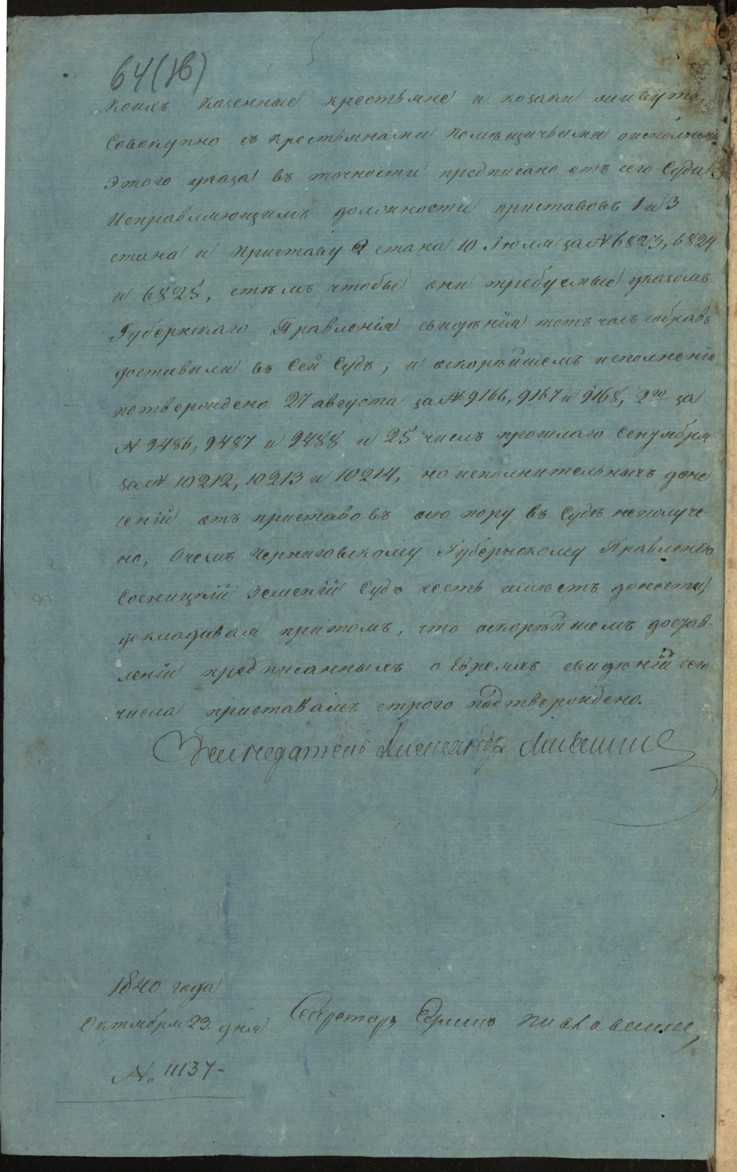 64(об)
коихъ казенные крестьяне и козаки живутъ
совокупно съ крестьянами помѣщичьими о исполненіи
Этого указа въ точности предписано отъ сего Суда
Исправляющимъ должности приставовъ 1 и 3
стана и Приставу 2 стана 10 Іюля за № 6823, 6824
и 6825, стѣмъ чтобы они требуемые указомъ
Губернскаго Правленія свидѣнія тотъ часъ собравъ
доставили въ Сей Судъ, и оскорѣйшемъ исполненіи
потверждено 27 августа за № 9166, 9167 и 9168, 2го за
№ 9486, 9487 и 9488 и 25 числъ прошлаго Сентября
за № 10212, 10213 и 10214, но исполнительныхъ доне
сеній отъ приставовъ по сю пору въ Судѣ неполуче
но, Очемъ Черниговскому Губернскому Правленію
Сосницкій Земскій Судъ честь имѣетъ донести,
докладывая притомъ, что оскорѣйшемъ достав-
леніи предписанныхъ о Евреяхъ свидѣній сего
числа приставамъ строго подтверждено.
Засѣдатель Александръ
1840 года
Октября 23 дня Секретарь
№ 11137-